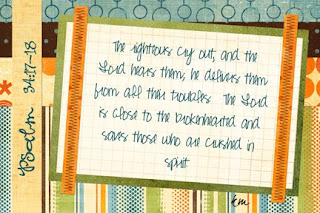 Psalm 34:17-18
The righteous cry out, and the
Lord hears them; he delivers them
from all their troubles. The Lord
is close to the brokenhearted and
saves those who are crushed in
spirit
km